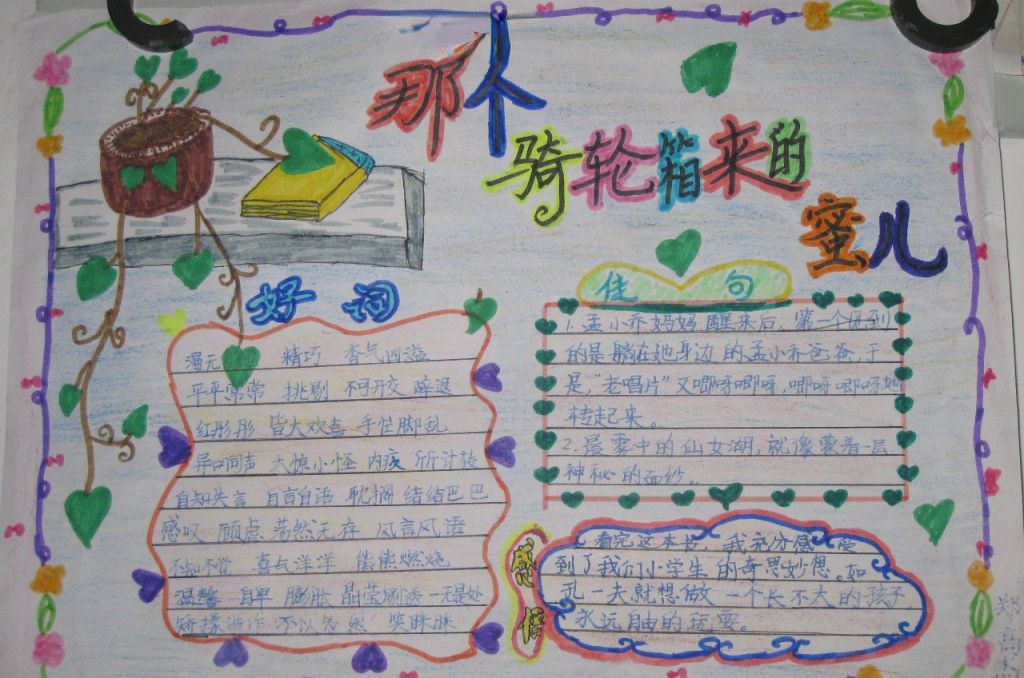 那个
骑轮箱来的
蜜儿
好词
漫无 精巧 香气四溢
平平常常 挑剔 不可开交 辞退
红彤彤 皆大欢喜 手忙脚乱
异口同声 大惊小怪 内疚 斤斤计较
自知失言 自言自语 耽搁 结结巴巴
感叹 顾点 荡然无存 风言风语
不知不觉 喜气洋洋 熊熊燃烧
温馨 自卑 膨胀 晶莹剔透 一无是处
矫揉造作 不以为然 笑眯眯
佳句
1.孟小乔妈妈醒来后,第一个见到
的是躺在她身边的孟小乔爸爸,于
是,“老唱片”又唧呀唧呀,唧呀唧呀地
转起来。
2.晨雾中的仙女湖,就像蒙着一层
神秘的面纱。
感悟
看完这本书,我充分感受
到了我们小学生的奇思妙想。如
孔一夫就想做一个长不大的孩子
永远自由的玩耍。